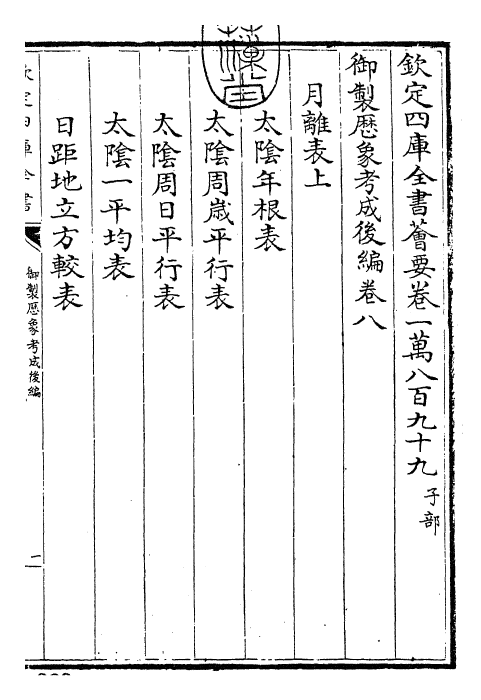 欽定四庫全書薈要卷一萬八百九十九 子部
御製厯象考成後編卷八
月離表上
太陰年根表
太陰周歲平行表
太陰周日平行表
太陰一平均表
日距地立方較表
欽定四庫全書
御製厯象考成後編